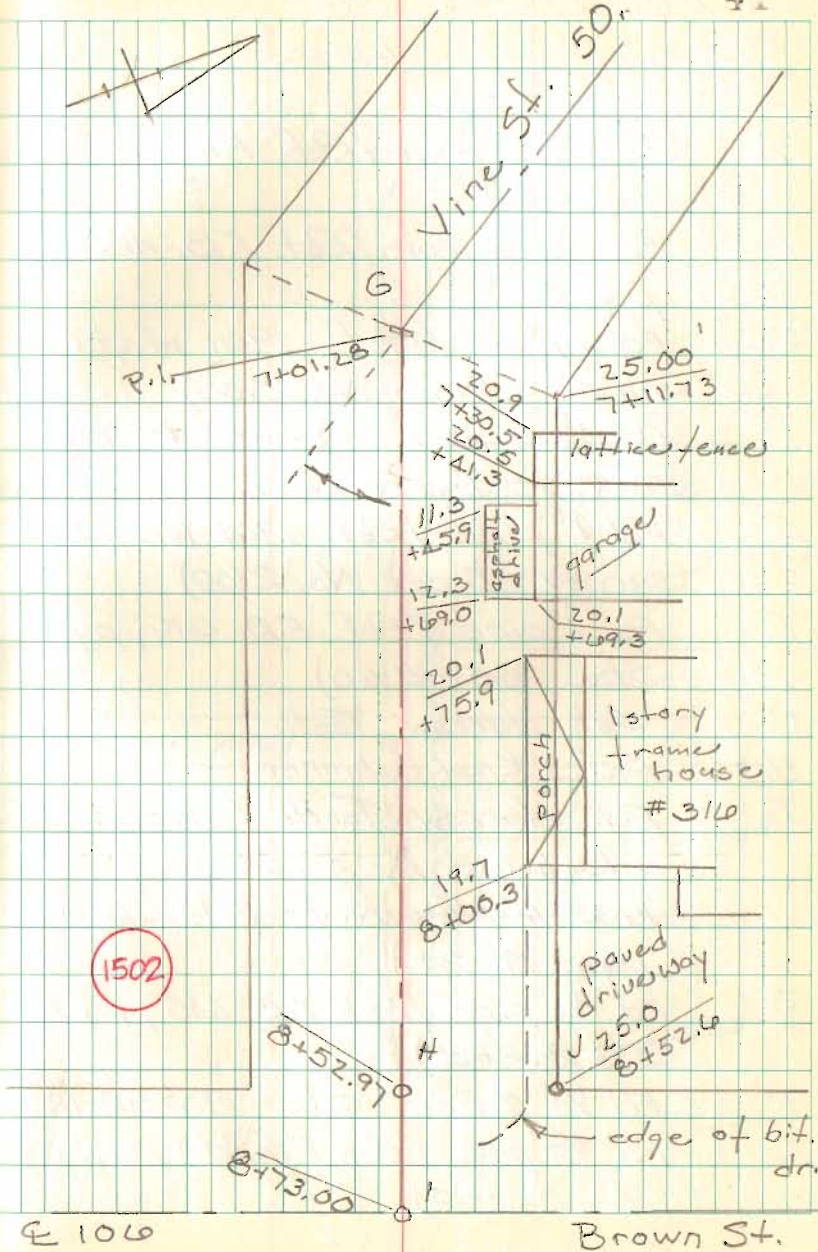 Vine St. 50'
G
P.I.
7+01.28
25.00'
7+11.73
20.9
7+30.5
20.5
+41.3
lattice fence
11.3
+45.9
asphalt
drive
garage
12.3
+69.0
20.1
+69.3
20.1
+75.9
porch
1 story
frame
house
# 316
19.7
8+00.3
1502
paved
driveway
J 25.0
8+52.6
H
8+52.97
edge of bit.
dr.
8+73.00
I
℄ 106
Brown St.